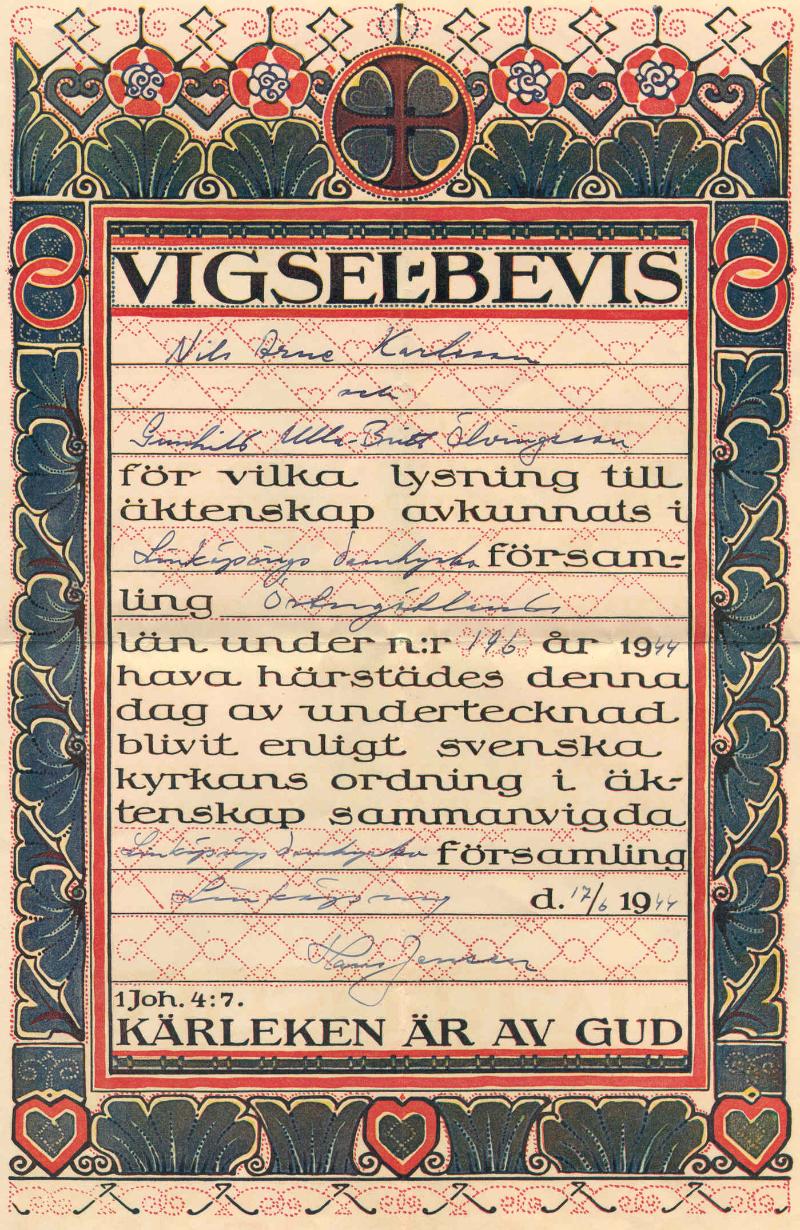 VIGSEL-BEVIS
Nils Arne Karlsson
och
Gunhild Ulla-Britt Elvingsson
för vilka lysning till
äktenskap avkunnats i
Linköpings domkyrko försam-
ling Östergötlands
län under n:r 196 år 1944
hava härstädes denna
dag av undertecknad
blivit enligt svenska
kyrkans ordning i äk-
tenskap sammanvigda
Linköpings domkyrko församling
Linköping d. 17/6 1944
Hans Jensen
1 Joh. 4:7.
KÄRLEKEN ÄR AV GUD